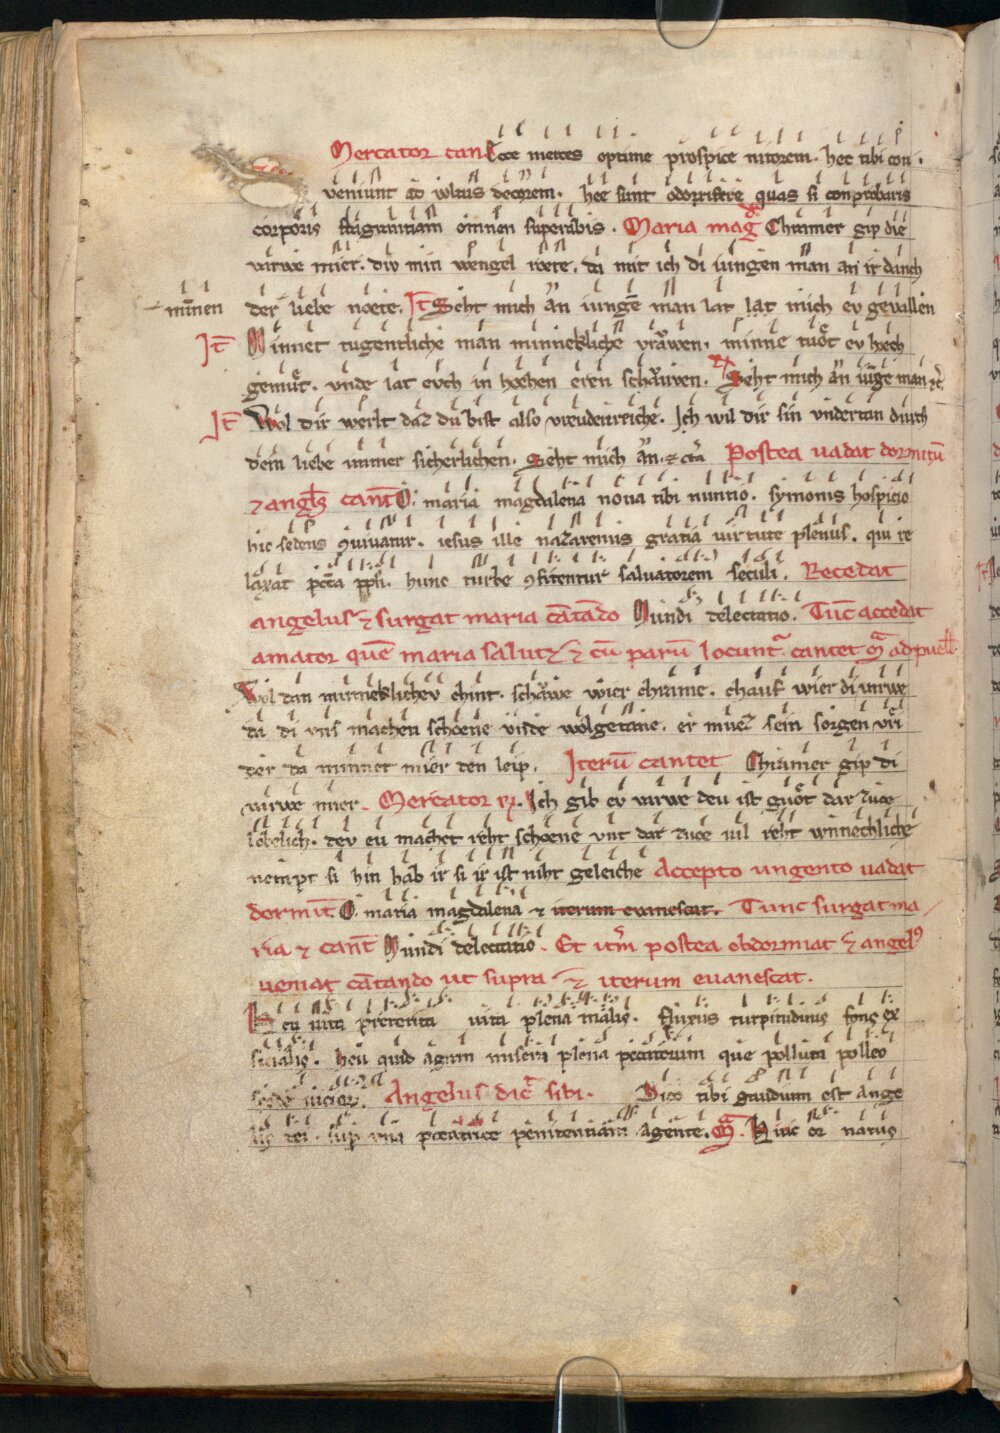 Mercator cant. Ecce merces optime prospice nitorem. hec tibi con
veniunt ad wltus decorem. hee sunt odorifere quas si conprobaris
corporis flagrantiam omnen superabis. Maria magd Chramer gip die
varwe mier. div min wengel roete. da mit ich di iungen man an ir danch
minnen der liebe noete. It Seht mich an iungē man lat lat mich ev gevallen
It Minnet tugentliche man minnekliche vrawen. minne tuot ev hoech
gemuot. vnde lat evch in hoehen eren schawen. Rꝫ Seht mich an iūge man ꝛc̄
It Wol dir werlt daz du bist also vreudenreiche. Ich wil dir sin vndertan durch
dein liebe immer sicherlichen. Seht mich an. ꝛ cet̄a Postea uadat dormitū
ꝛ angl̄s cant̄ O. maria magdalena noua tibi nuntio. symonis hospicio
hic sedens ꝯuiuatur. iesus ille nazarenus gratia uirtute plenus. qui re
laxat pcc̄ta ppl̄i. hunc turbe ꝯfitentur saluatorem seculi. Recedat
angelus ꝛ surgat maria cātādo Mundi delectatio. Tūc accedat
amator quē maria salutꝫ ꝛ cū parū locunt᷑. cantet m̄ ad puell̄
Wol dan minneklichev chint. schawe wier chrame. chauf wier di varwe
da di vns machen schoene vnde wolgetane. er muez sein sorgen vri
der da minnet mier den leip. Iterū cantet Chramer gip di
varwe mier. Mercator Rꝫ. Ich gib ev varwe deu ist guot dar zuoe
lobelich. dev eu machet reht schoene vnt dar zuoe uil reht wnnechliche
nempt si hin hab ir si ir ist niht geleiche Accepto ungento uadat
dormit̄ O. maria magdalena ꝛ iterum evanescat. Tunc surgat ma
ria ꝛ cant̄ Mundi delectatio. Et it̄m postea obdormiat ꝛ angelꝰ
ueniat cātando ut supra ꝛ iterum evanescat.
Heu uita preterita uita plena malis. fluxus turpitudinis fons ex
sicialis. heu quid agam misera plena peccatorum que polluta polleo
sorde uicior̄. Angelus dic̄ sibi. Dico tibi gaudium est ange
lis dei sup̄ una peccatrice penitentiam agente. M̄. Hinc or natus